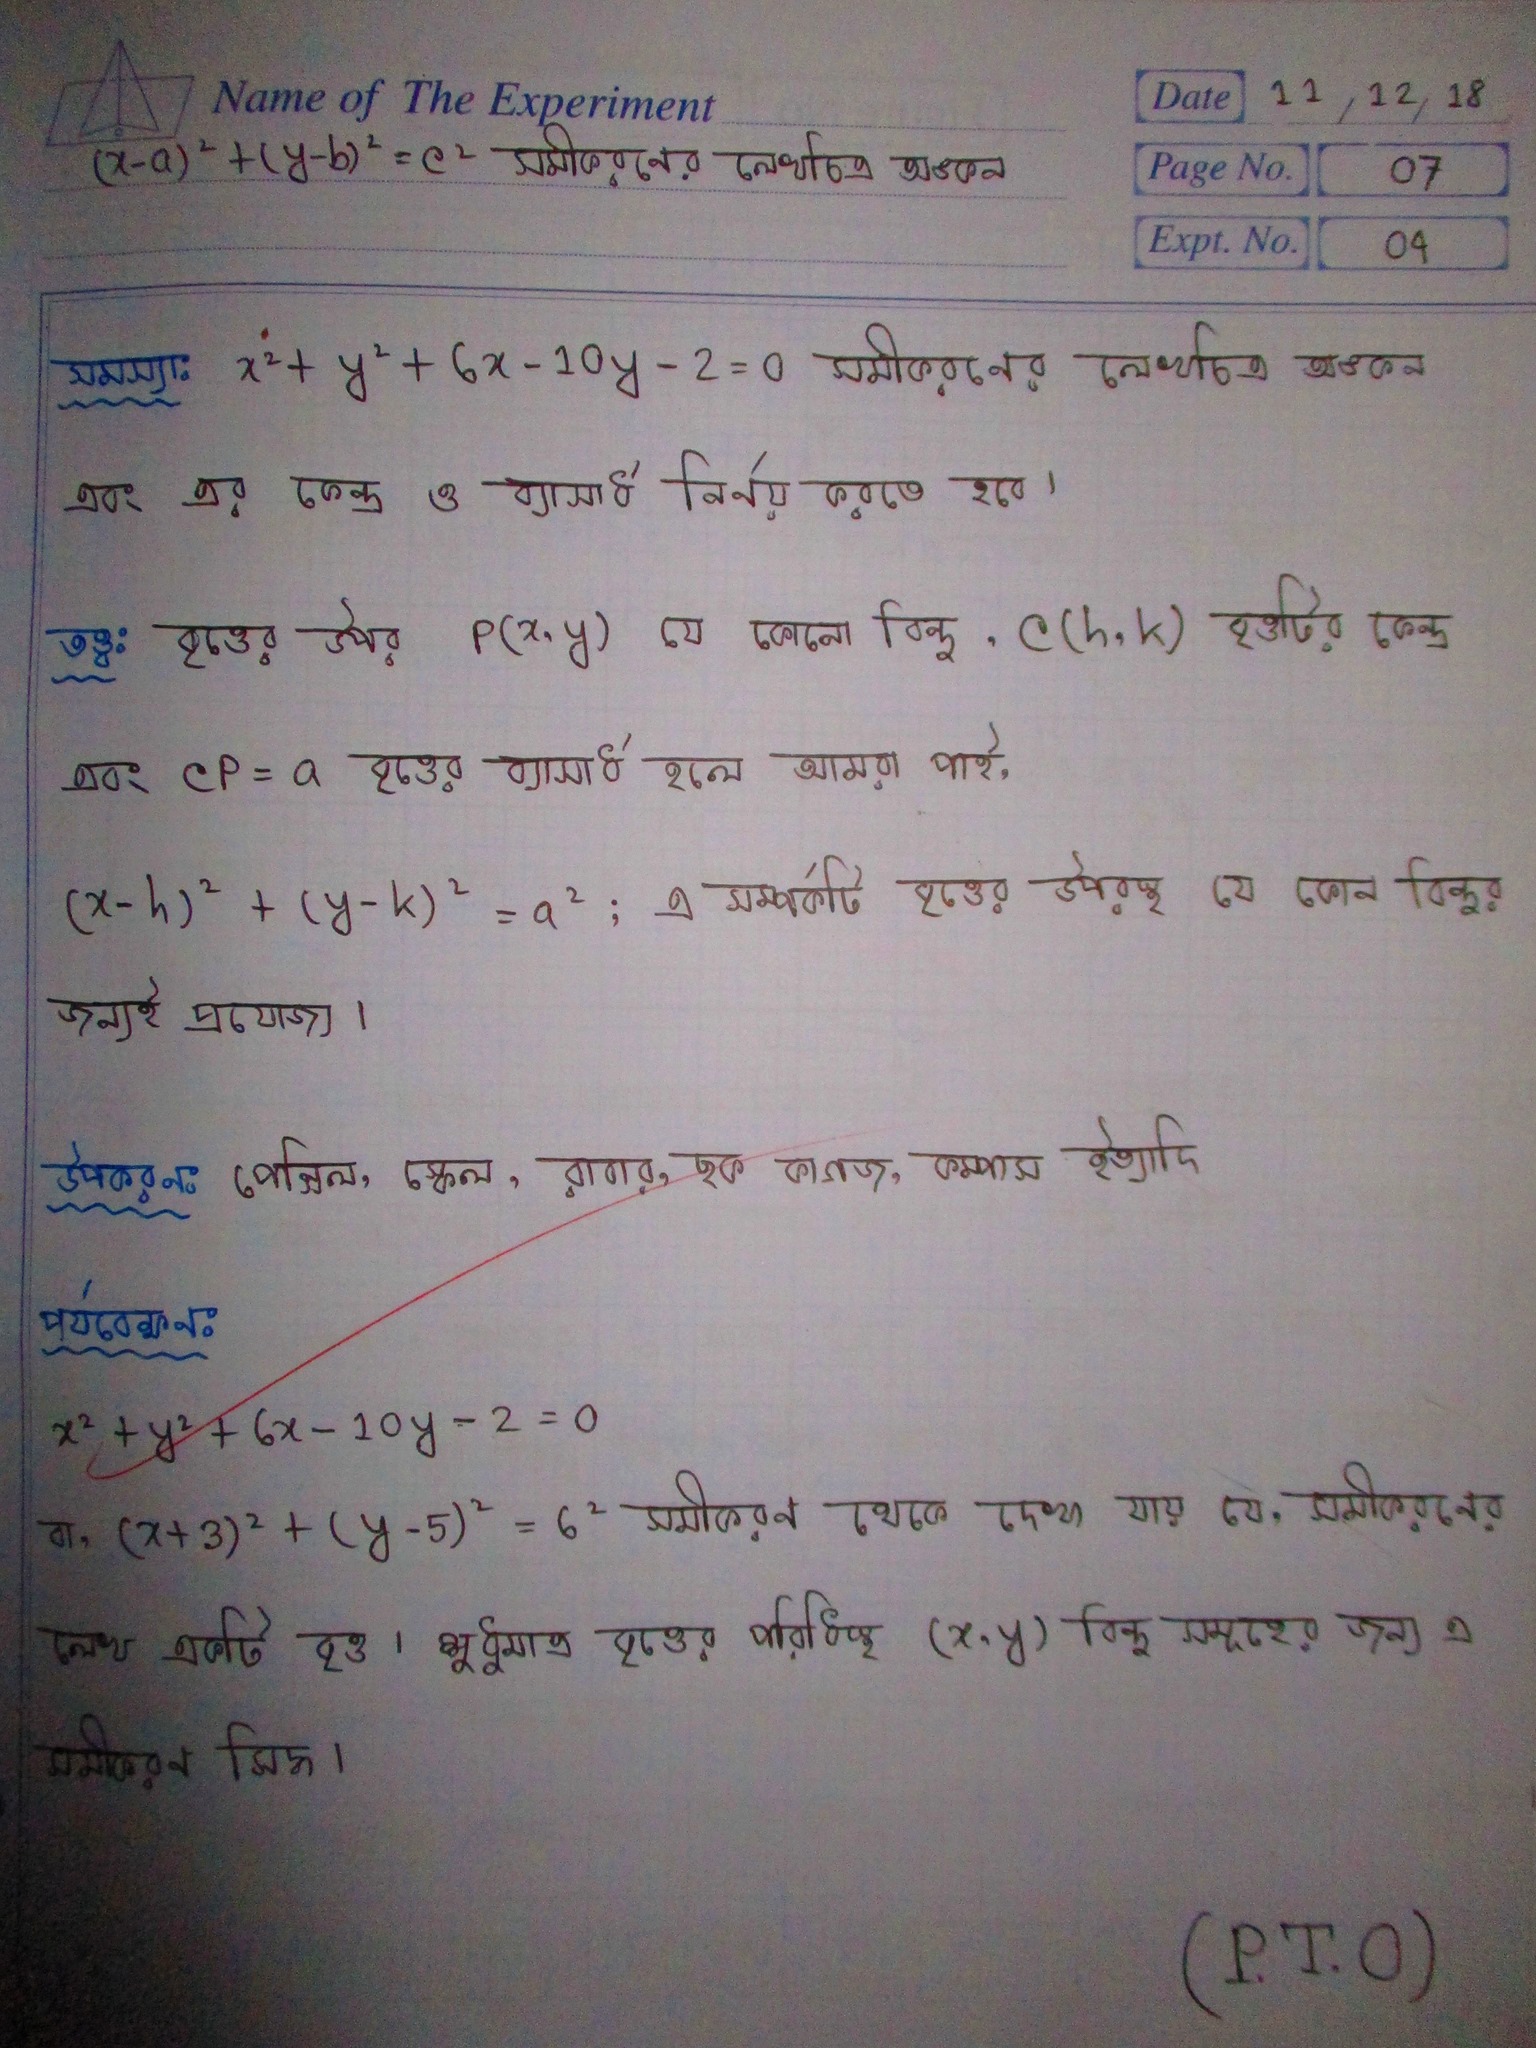 Name of The Experiment
(x-a)² + (y-b)² = c² সমীকরনের লেখচিত্র অঙ্কন
Date 11, 12, 18
Page No. 07
Expt. No. 04
সমস্যাঃ x² + y² + 6x - 10y - 2 = 0 সমীকরনের লেখচিত্র অঙ্কন
এবং এর কেন্দ্র ও ব্যাসার্ধ নির্নয় করতে হবে।
তত্ত্বঃ বৃত্তের উপর P(x, y) যে কোনো বিন্দু, C(h, k) বৃত্তটির কেন্দ্র
এবং CP = a বৃত্তের ব্যাসার্ধ হলে আমরা পাই,
(x-h)² + (y-k)² = a² ; এ সম্পর্কটি বৃত্তের উপরস্থ যে কোন বিন্দুর
জন্যই প্রযোজ্য।
উপকরনঃ পেন্সিল, স্কেল, রাবার, ছক কাগজ, কম্পাস ইত্যাদি
পর্যবেক্ষনঃ
x² + y² + 6x - 10y - 2 = 0
বা, (x+3)² + (y-5)² = 6² সমীকরন থেকে দেখা যায় যে, সমীকরনের
লেখ একটি বৃত্ত। শুধুমাত্র বৃত্তের পরিধিস্থ (x, y) বিন্দু সমূহের জন্য এ
সমীকরন সিদ্ধ।
(P.T.O)